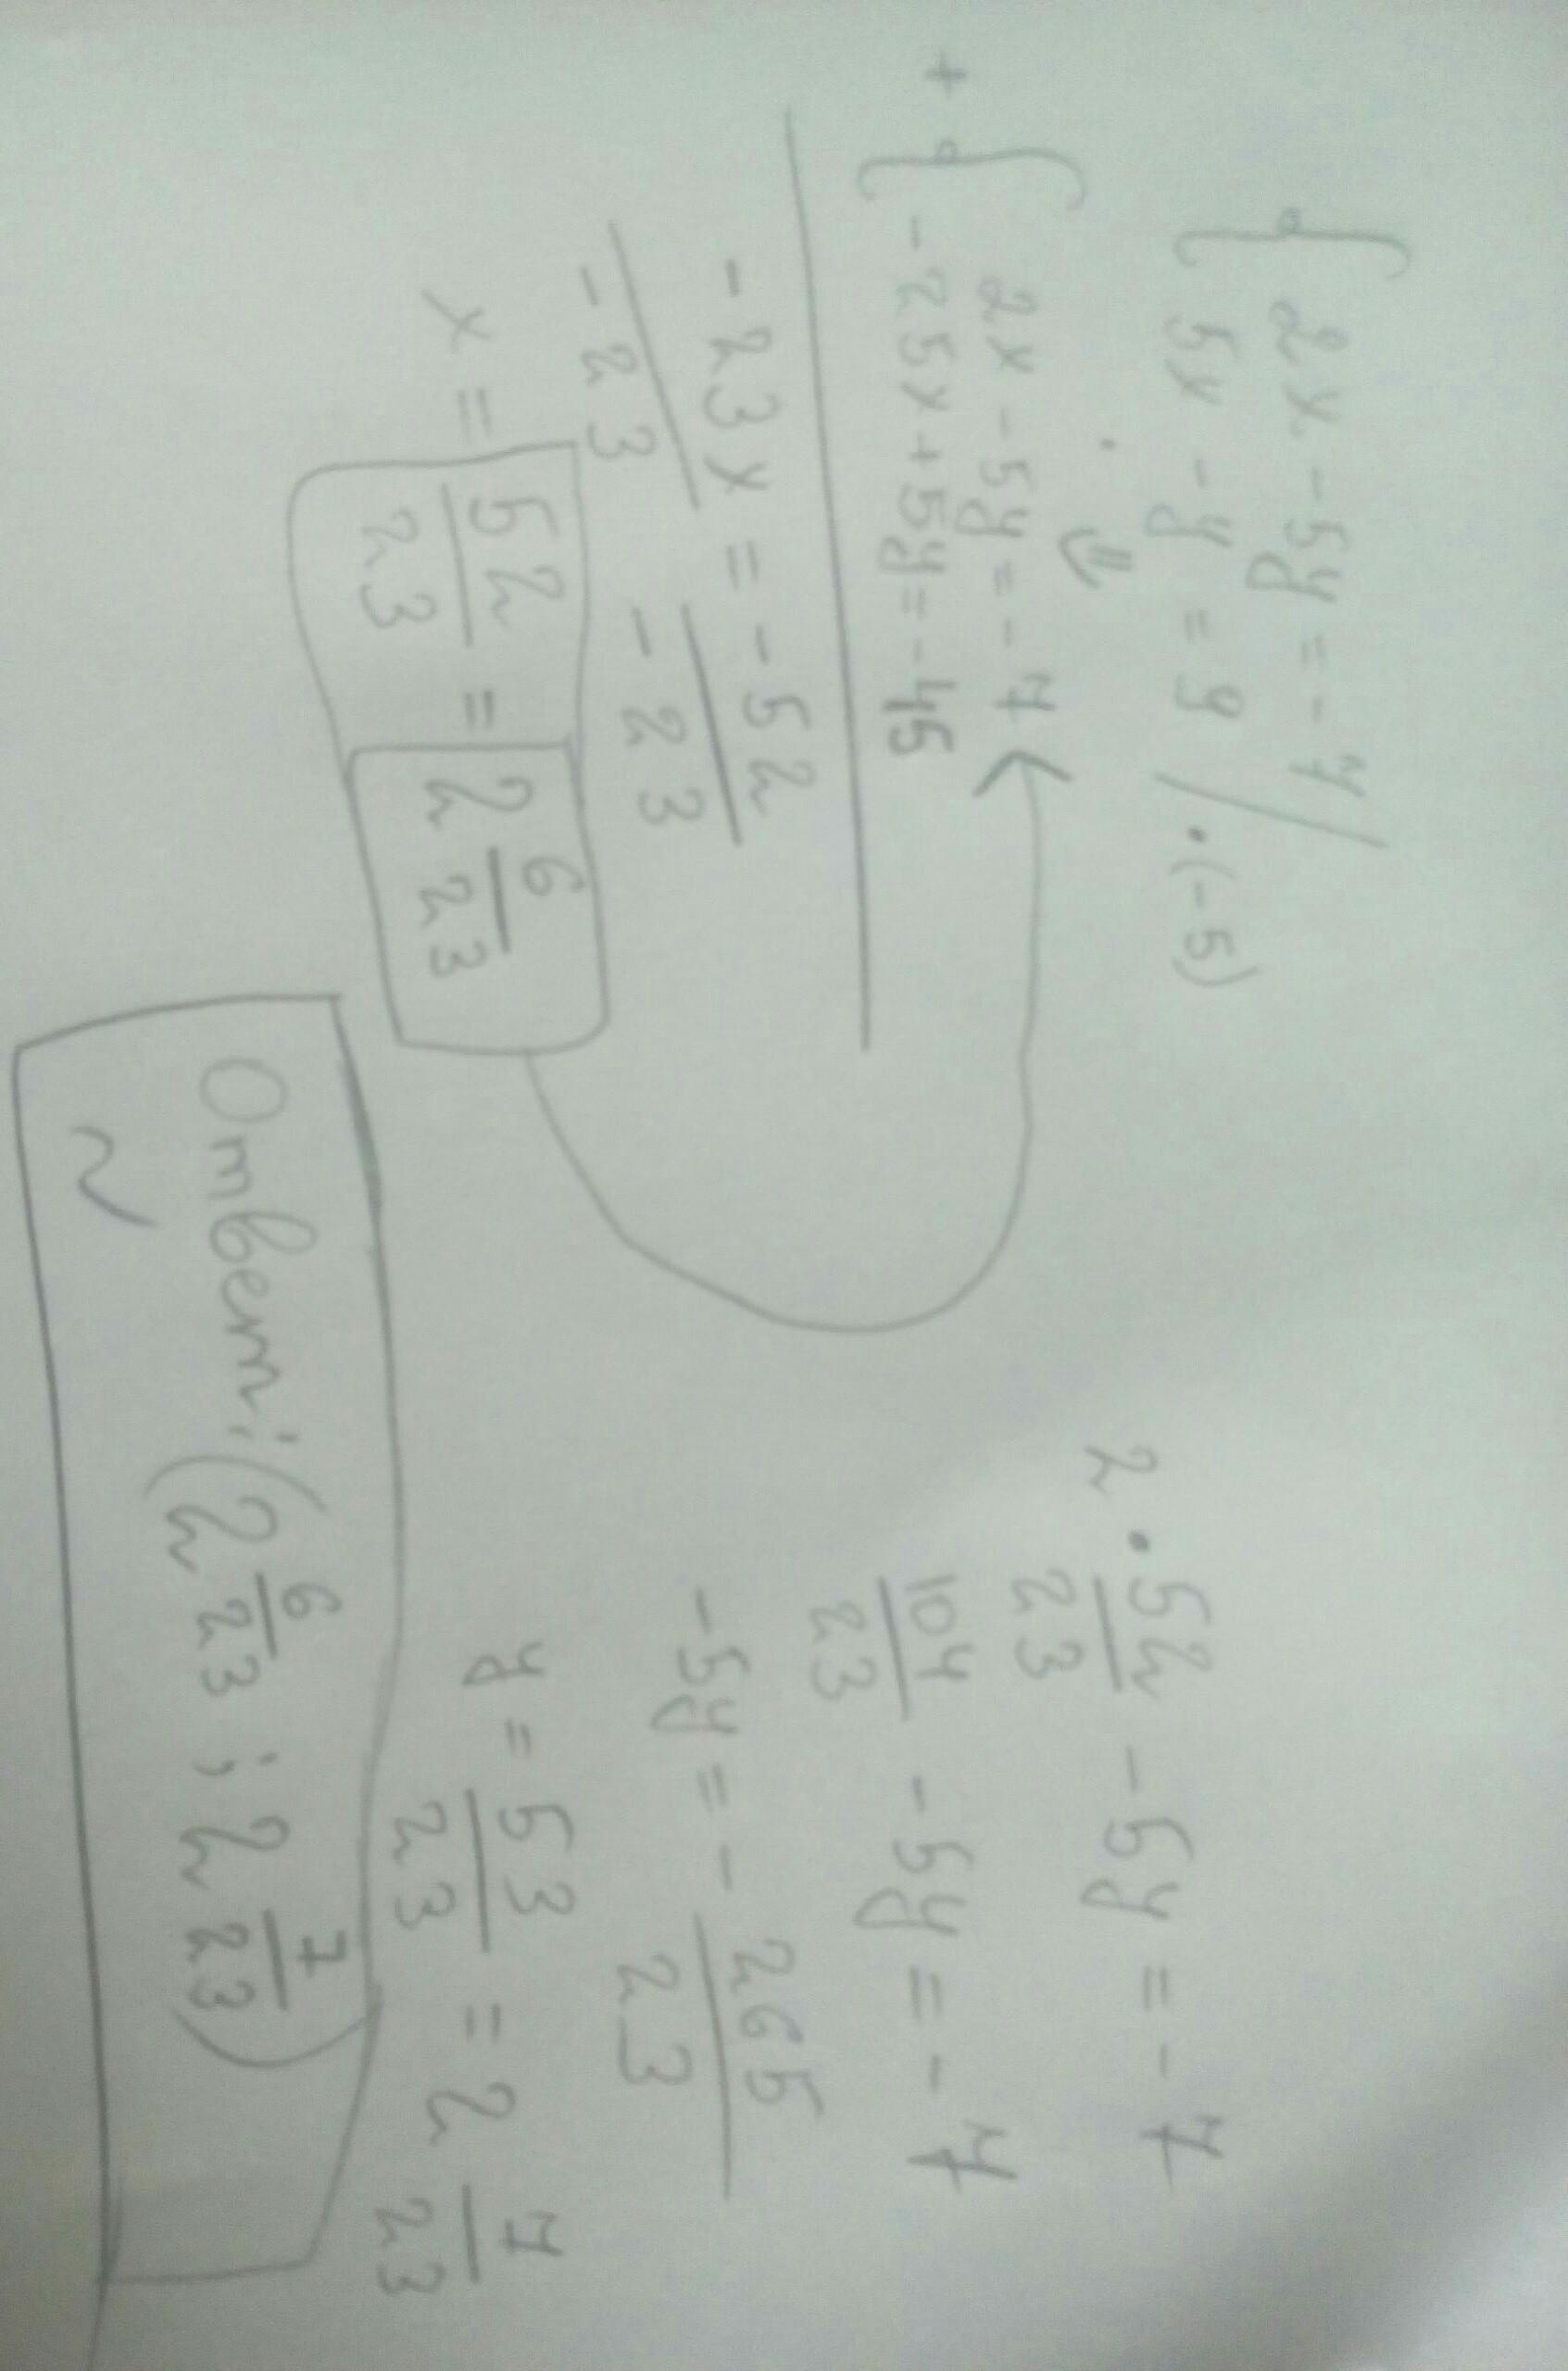 { 2x - 5y = - 7 /
5x - y = 9 / · (-5)
⇓
+ { 2x - 5y = - 7
- 25x + 5y = - 45
- 23x = - 52
- 23 - 23
x = 52/23 = 2 6/23
2 · 52/23 - 5y = - 7
104/23 - 5y = - 7
-5y = - 265/23
y = 53/23 = 2 7/23
Ответ: (2 6/23 ; 2 7/23)